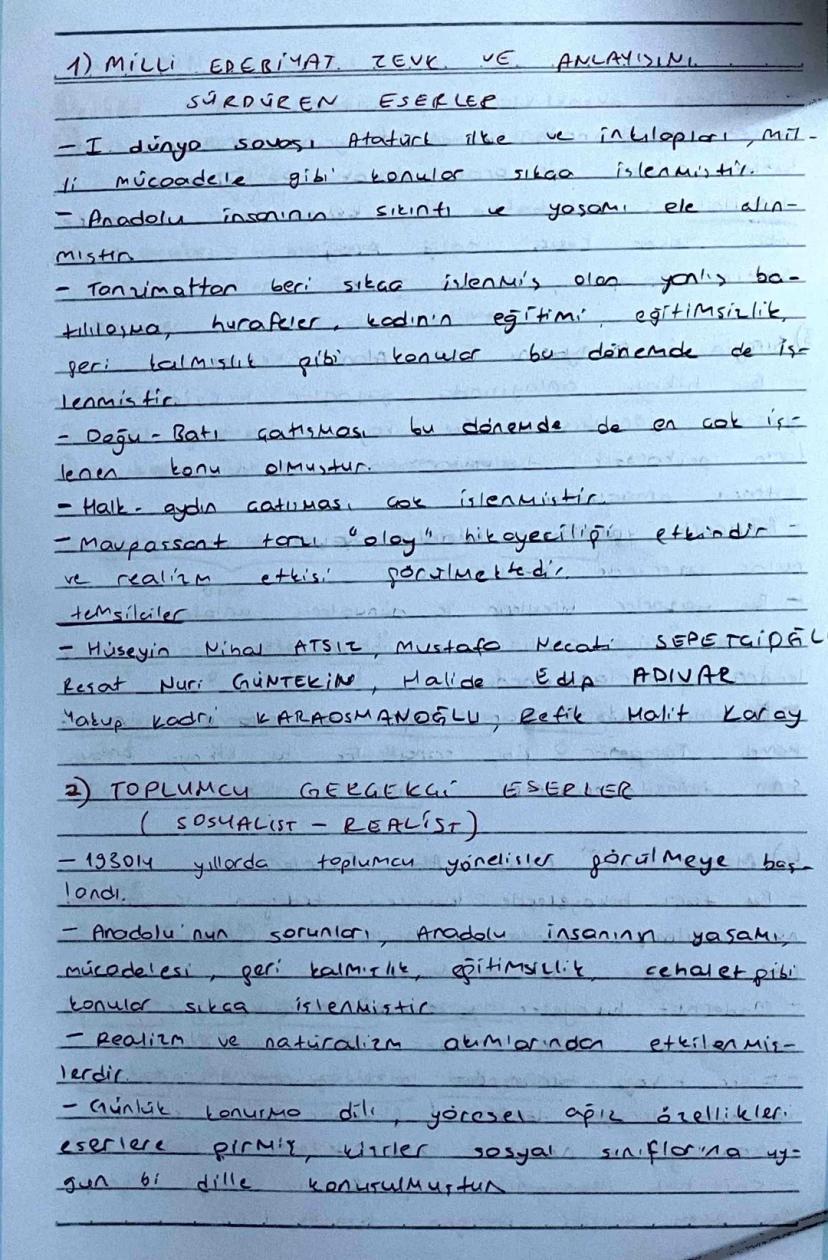 1) MİLLİ EDEBİYAT ZEVK VE ANLAYIŞINI
SÜRDÜREN ESERLER
- I dünya savaşı Atatürk ilke ve inkılapları, mil-
li mücoadele gibi konular sıkça işlenmiştir.
- Anadolu insanının sıkıntı ve yaşamı ele alın-
mıştır.
- Tanzimattan beri sıkça işlenmiş olan yanlış ba-
tılılaşma, hurafeler, kadının eğitimi, eğitimsizlik,
geri kalmışlık gibi konular bu dönemde de iş-
lenmiştir.
- Doğu - Batı çatışması bu dönemde de en çok iş-
lenen konu olmuştur.
- Halk - aydın çatışması çok işlenmiştir.
- Maupassant tarzı "olay" hikayeciliği etkindir
ve realizm etkisi görülmektedir.
temsilciler
- Hüseyin Nihal ATSIZ, Mustafa Necati SEPETÇİOĞL
Reşat Nuri GÜNTEKİN, Halide Edip ADIVAR
Yakup Kadri KARAOSMANOĞLU, Refik Halit Karay
2) TOPLUMCU GERÇEKÇİ ESERLER
( SOSYALİST - REALİST)
- 1930lu yıllarda toplumcu yönelişler görülmeye baş-
landı.
- Anadolu'nun sorunları, Anadolu insanının yaşamı,
mücadelesi, geri kalmışlık, eğitimsizlik, cehalet gibi
konular sıkça işlenmiştir
- Realizm ve natüralizm akımlarından etkilenmiş-
lerdir.
- Günlük konuşma dili, yöresel ağız özellikleri
eserlere girmiş, kişiler sosyal sınıflarına uy-
gun bi dille konuşulmuştur